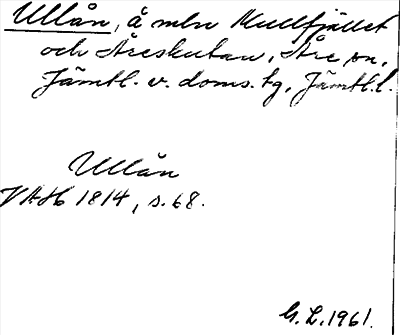 Ullån, å mln Mullfjället
och Åreskutan, Åre sn,
Jämtl. v. doms. tg, Jämtl. l.
Ullån
VAH 1814, s. 68.
G. L. 1961.